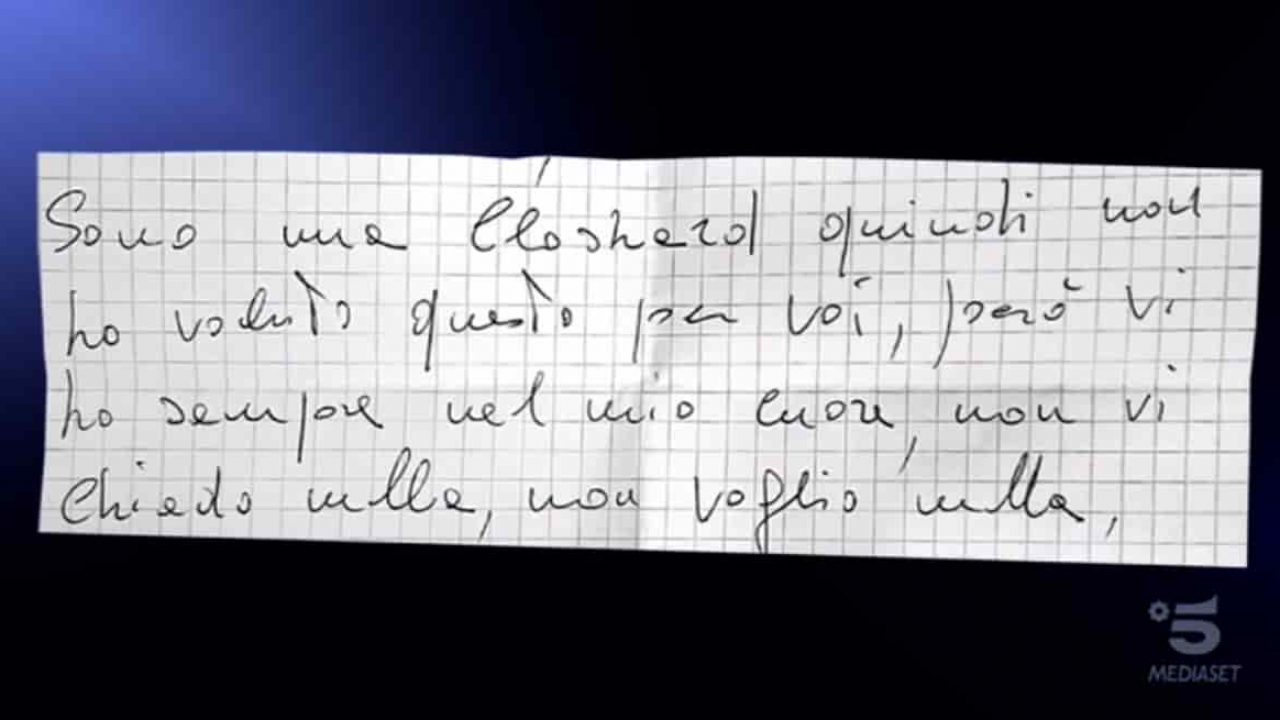 Sono una Closhard quindi non
ho voluto questo per voi, però vi
ho sempre nel mio cuore, non vi
chiedo nulla, non voglio nulla,
5
MEDIASET